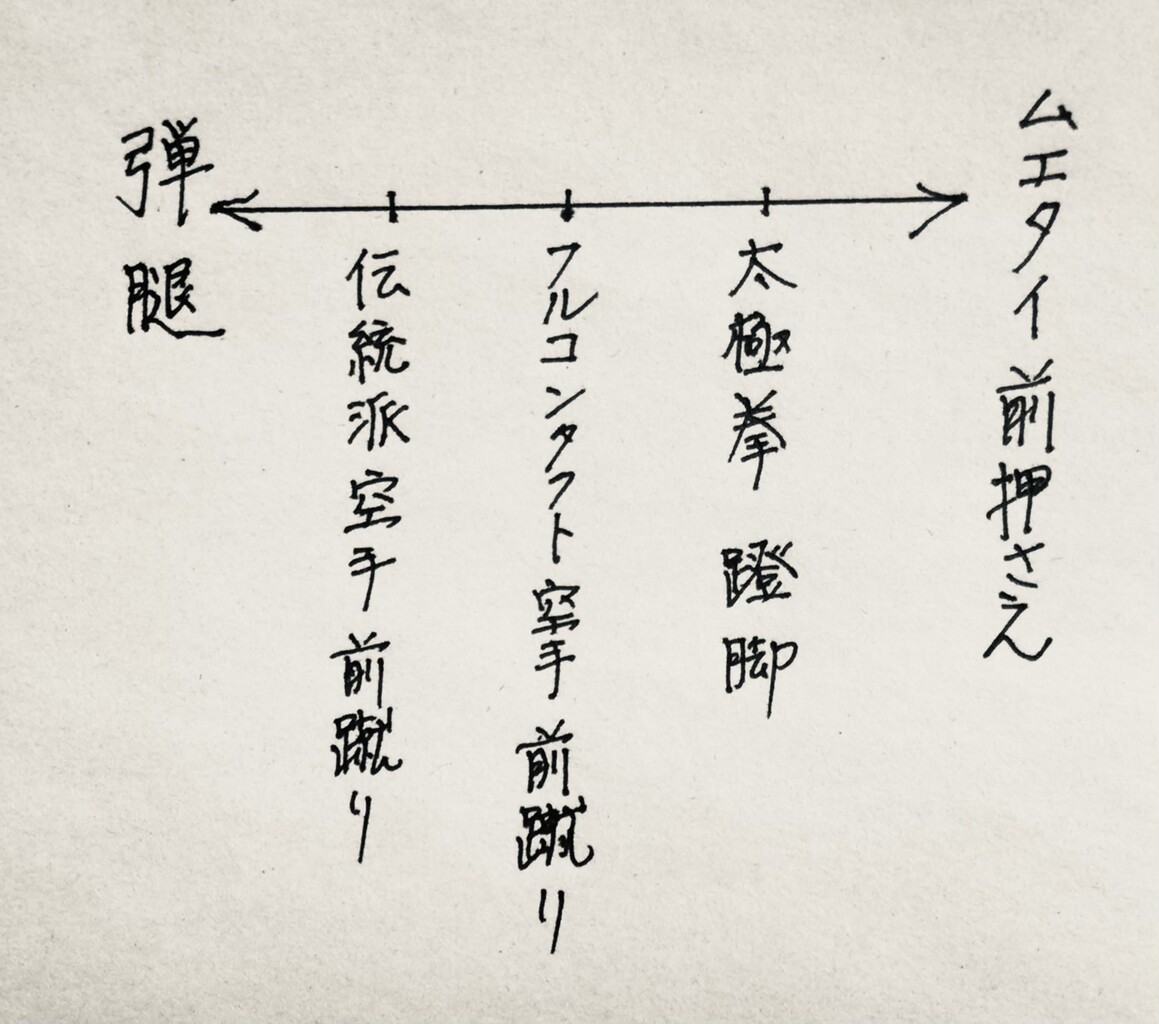 弾腿
伝統派空手 前蹴り
フルコンタクト空手 前蹴り
太極拳 蹬脚
ムエタイ 前押さえ